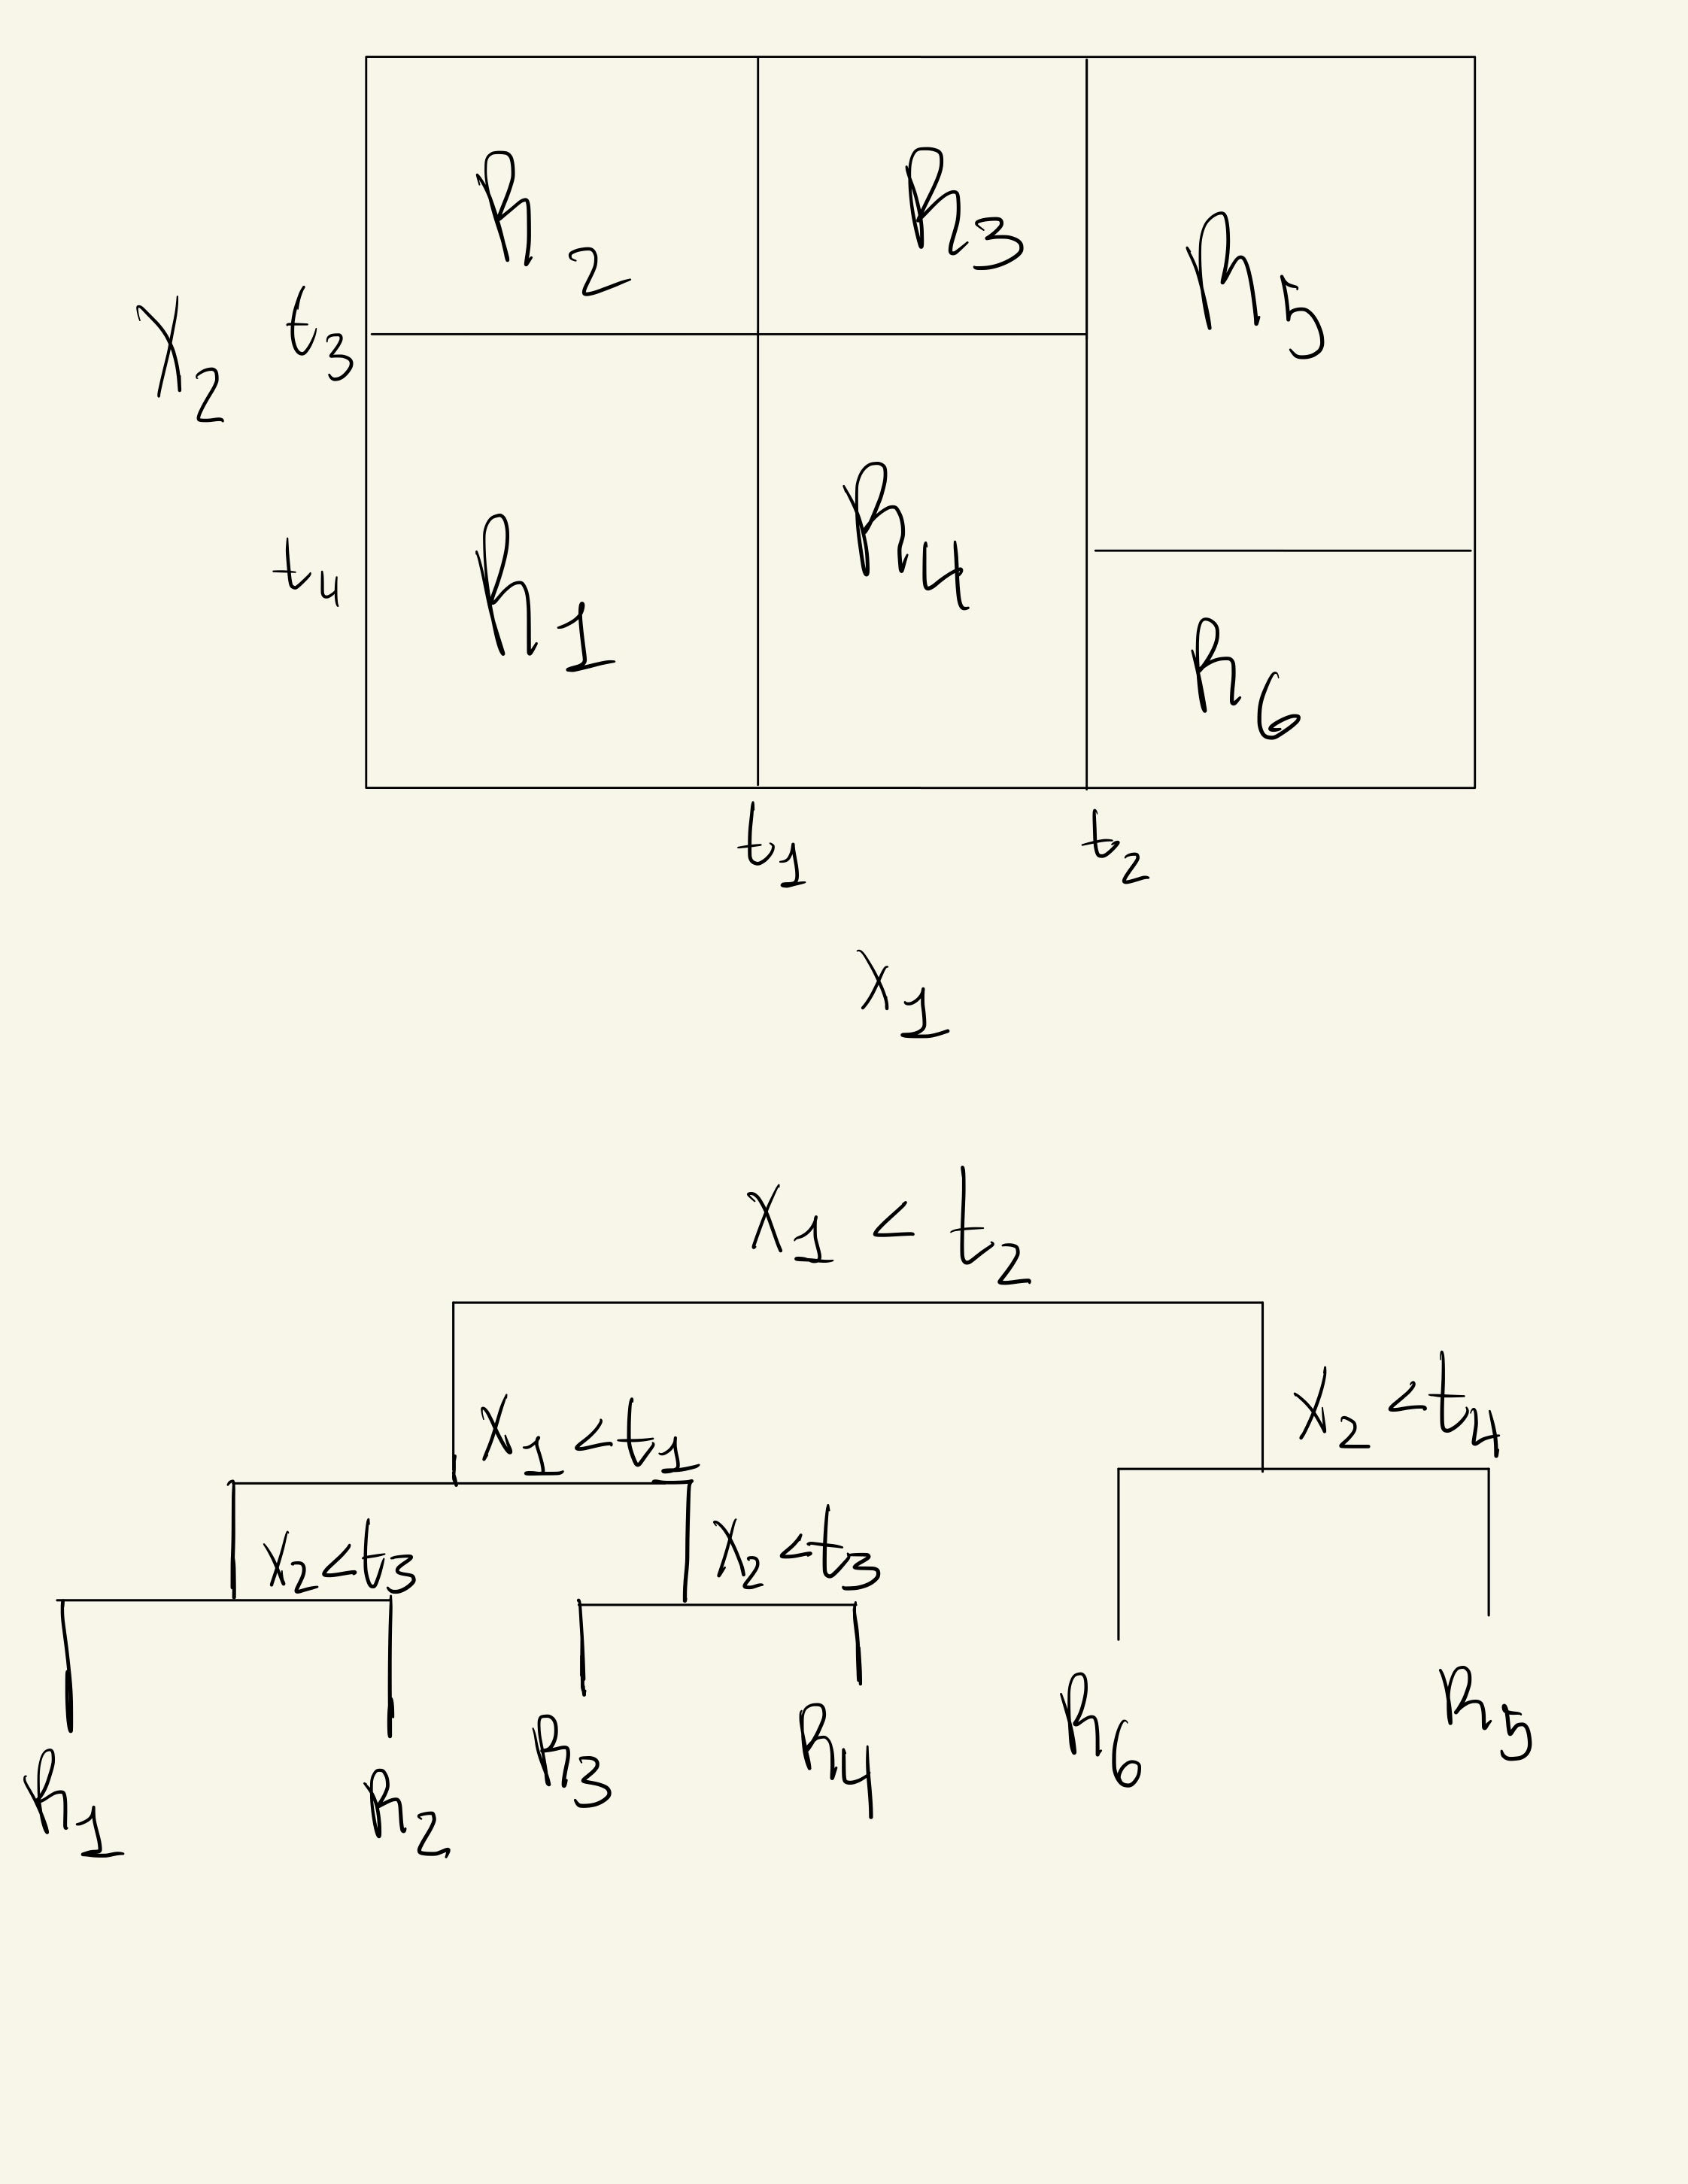 R2 R3 R5
X2 t3
t4 R1 R4 R6
t1 t2
X1
X1 < t2
X1 < t1 X2 < t4
X2 < t3 X2 < t3
R1 R2 R3 R4 R6 R5